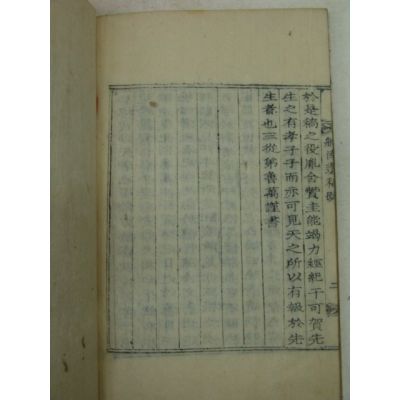 於是稿之役胤舍贊圭能竭力經紀于可賀先
生之有孝子子而亦可見天之所以有報於先
生者也三從弟魯萬謹書
二